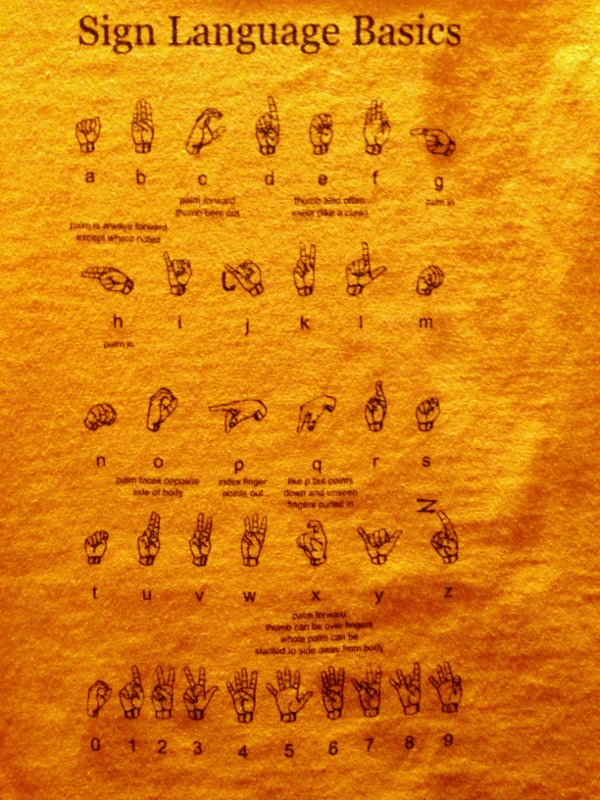 Sign Language Basics
a b c d e f g
palm forward
thumb bent out
thumb also often
lower (like a claw)
palm in
palm is always forward
except where noted
h i j k l m
palm in
n o p q r s
palm faces opposite
side of body
index finger
points out
like p but points
down and unseen
fingers curled in
Z
t u v w x y z
palm forward
thumb can be over fingers
whole palm can be
slanted to side away from body
0 1 2 3 4 5 6 7 8 9